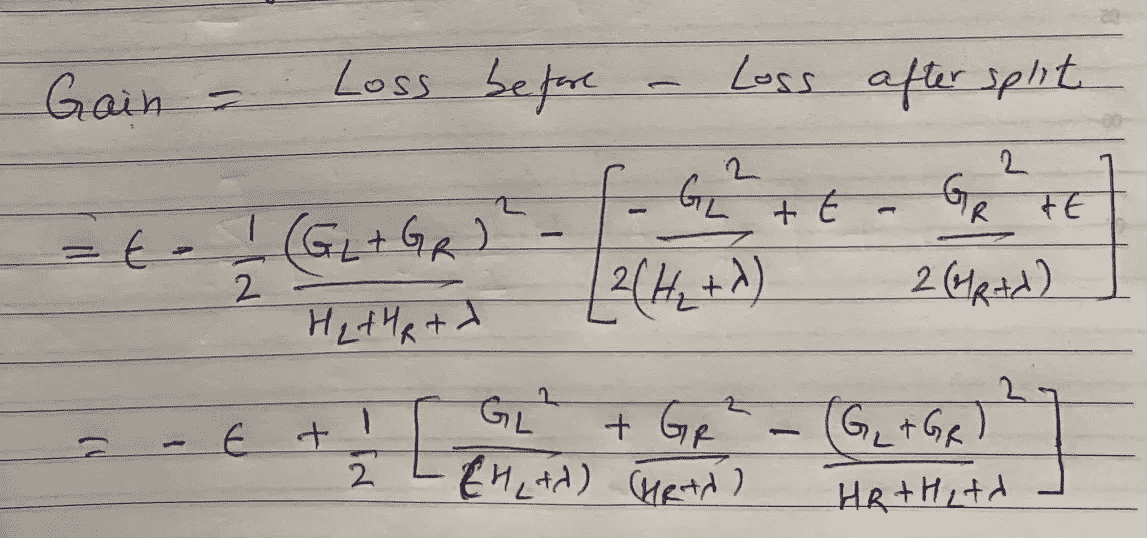 Gain = Loss before - Loss after split
= ϵ - 1/2 (G_L + G_R)^2 / (H_L + H_R + λ) - [ - G_L^2 / 2(H_L + λ) + ϵ - G_R^2 / 2(H_R + λ) + ϵ ]
= - ϵ + 1/2 [ G_L^2 / (H_L + λ) + G_R^2 / (H_R + λ) - (G_L + G_R)^2 / H_R + H_L + λ ]